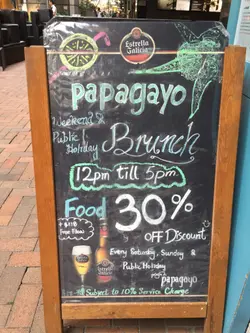 Estrella
Galicia
papagayo
Weekend &
Public
Holiday
Brunch
12pm till 5pm
Food 30%
OFF Discount
Free Flow
Every Saturday, Sunday &
Public Holiday
papagayo
* Subject to 10% Service Charge